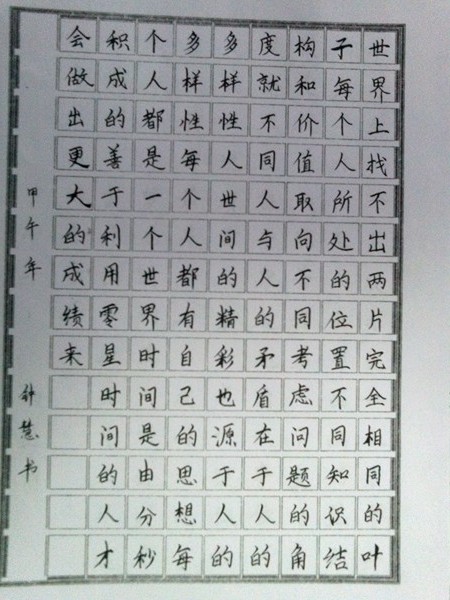 世界上找不出两片完全相同的叶
子每个人所处的位置不同知识结
构和价值取向不同考虑问题的角
度就不同人与人的矛盾在于人的
多样性人世间的精彩也源于人的
多样性每个人都有自己的思想每
个人都是一个世界时间是由分秒
积成的善于利用零星时间的人才
会做出更大的成绩来
甲午年 慧书